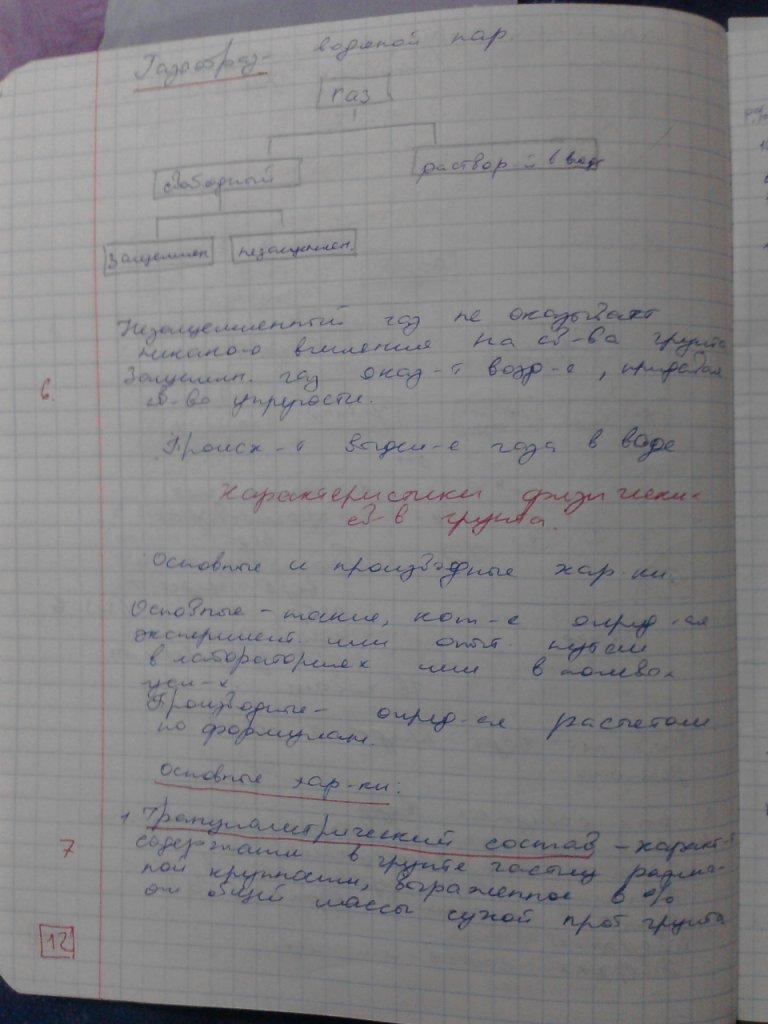 Газообраз- водяной пар.
газ
свободный
раствор-й в воде
Защемлен
незащемлен.
Незащемленный газ не оказывает
никако-о влияния на св-ва грунта
Защемлен. газ оказ-т возд-е, придавая
6.
св-во упругости.
Происх-т выдел-е газа в воде
Характеристики физически-
св-в грунта.
Основные и производные хар-ки.
Основные - такие, кот-е опред-ся
эксперимент. или опыт. путем
в лабораториях или в полевых
усл-х
Производные - опред-ся расчетом
по формулам.
Основные хар-ки:
1 Гранулометрический состав - характ-т
7
содержание в грунте частиц различ-
ной крупности, выраженное в %
от общей массы сухой проб грунта
12